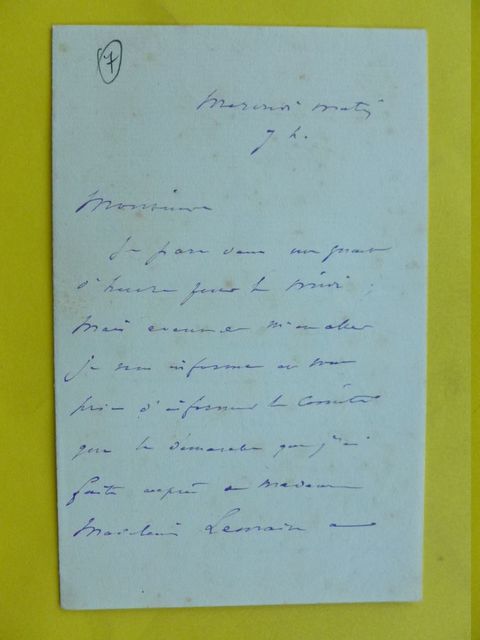 7
Mercredi matin
7 h.
Monsieur
Je pars dans un quart
d'heure pour le Midi ;
Mais avant de m'en aller
je vous informe et vous
prie d'informer le Comité
que la démarche que j'ai
faite auprès de Madame
Madeleine Lemaire a